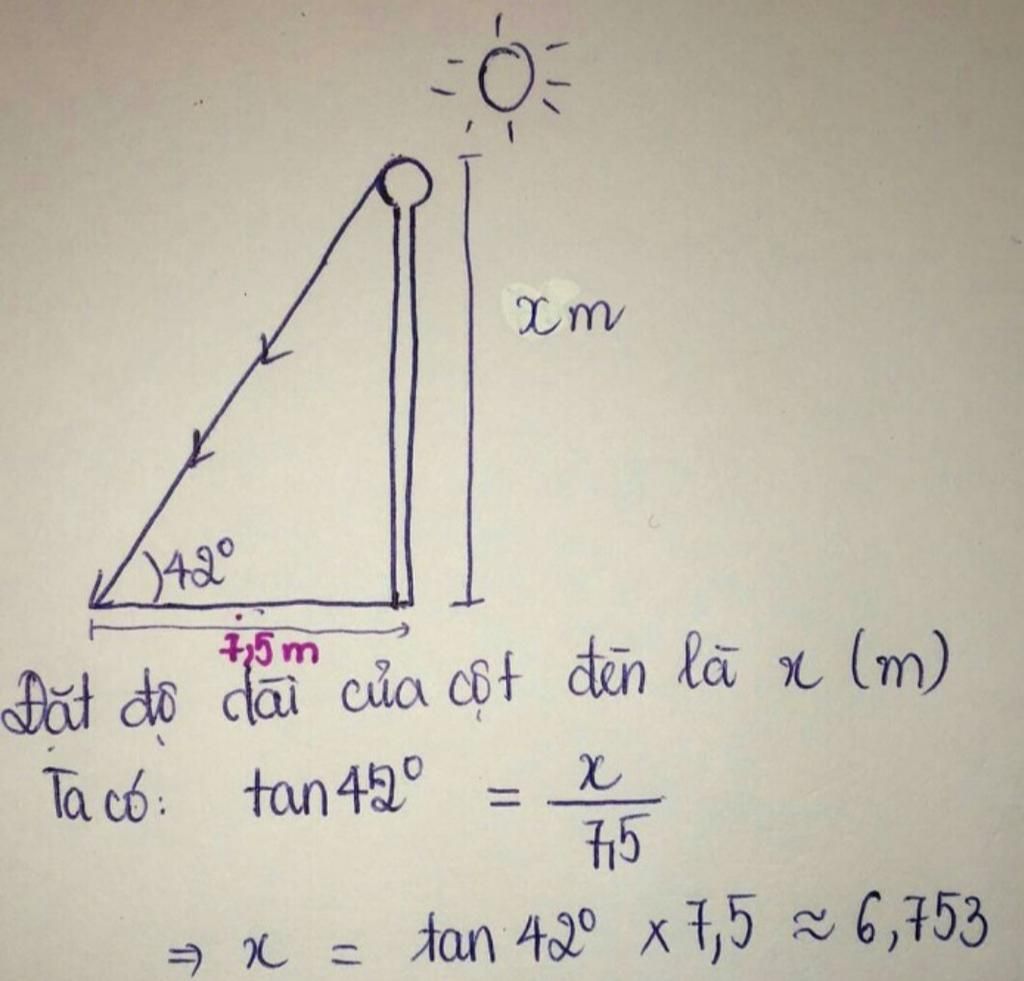 x m
42°
7,5 m
Đặt độ dài của cột đèn là x (m)
Ta có: tan 42° = x / 7,5
⇒ x = tan 42° × 7,5 ≈ 6,753